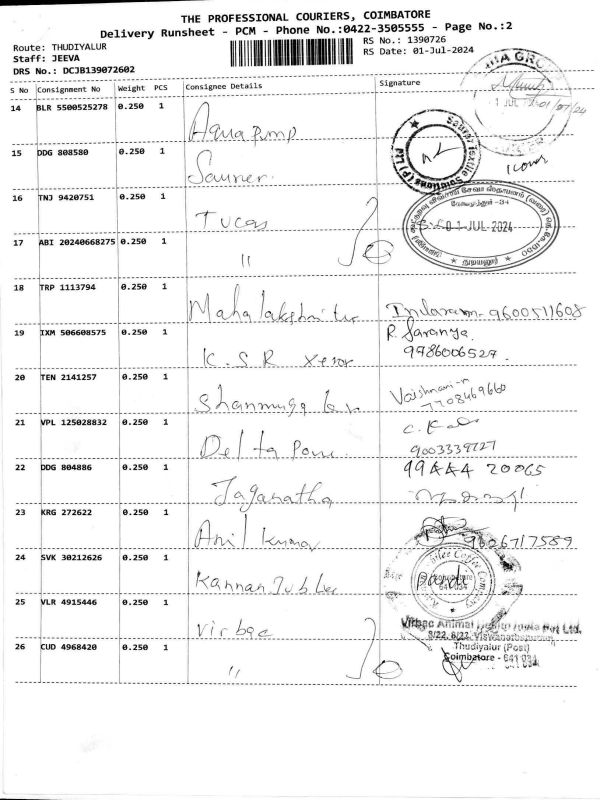 THE PROFESSIONAL COURIERS, COIMBATORE
Delivery Runsheet - PCM - Phone No.:0422-3505555 - Page No.:2
Route: THUDIYALUR
RS No.: 1390726
Staff: JEEVA
RS Date: 01-Jul-2024
DRS No.: DCJB139072602
S No Consignment No Weight PCS Consignee Details Signature
14 BLR 5500525278 0.250 1 Aqua pump
01/07/24
15 DDG 808580 0.250 1
16 TNJ 9420751 0.250 1 Tucas
01 JUL 2024
17 ABI 20240668275 0.250 1 "
18 TRP 1113794 0.250 1 Mahalakshmi 9600511608
19 IXM 506608575 0.250 1 K.S.R xerox R. Saranya
9986006527.
20 TEN 2141257 0.250 1 Shanmuga Vaishnavi-n
7708469660
21 VPL 125028832 0.250 1 Delta
9003339727
22 DDG 804886 0.250 1 Jaganatha 99444 20065
23 KRG 272622 0.250 1 Anil Kumar 9626717589
24 SVK 30212626 0.250 1 Kannan Jubilee
Coffee Company
641 034
25 VLR 4915446 0.250 1 Virbac
Virbac Animal Health India Pvt Ltd.
Thudiyalur (Post)
Coimbatore - 641 034
26 CUD 4968420 0.250 1 "